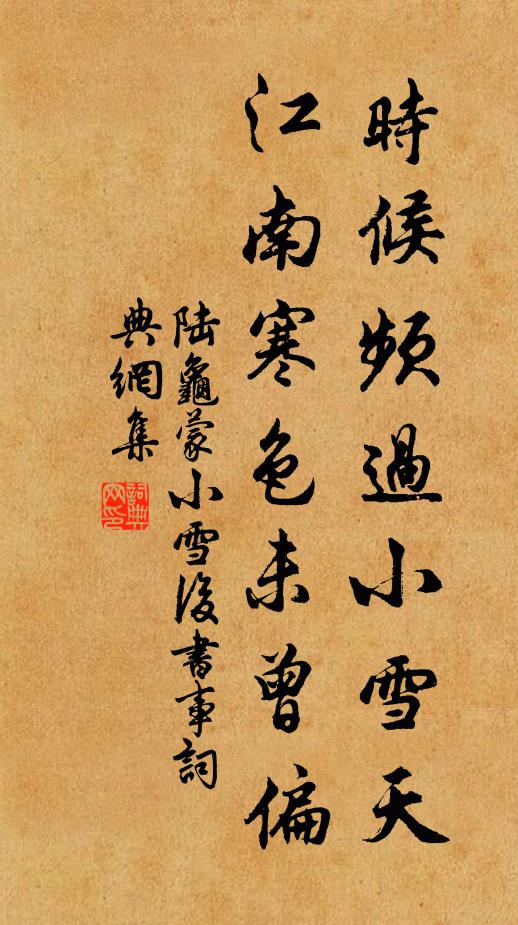 時候頻過小雪天
江南寒色未曾偏
陸龜蒙小雪後書事詞
典網集
詞典
网印